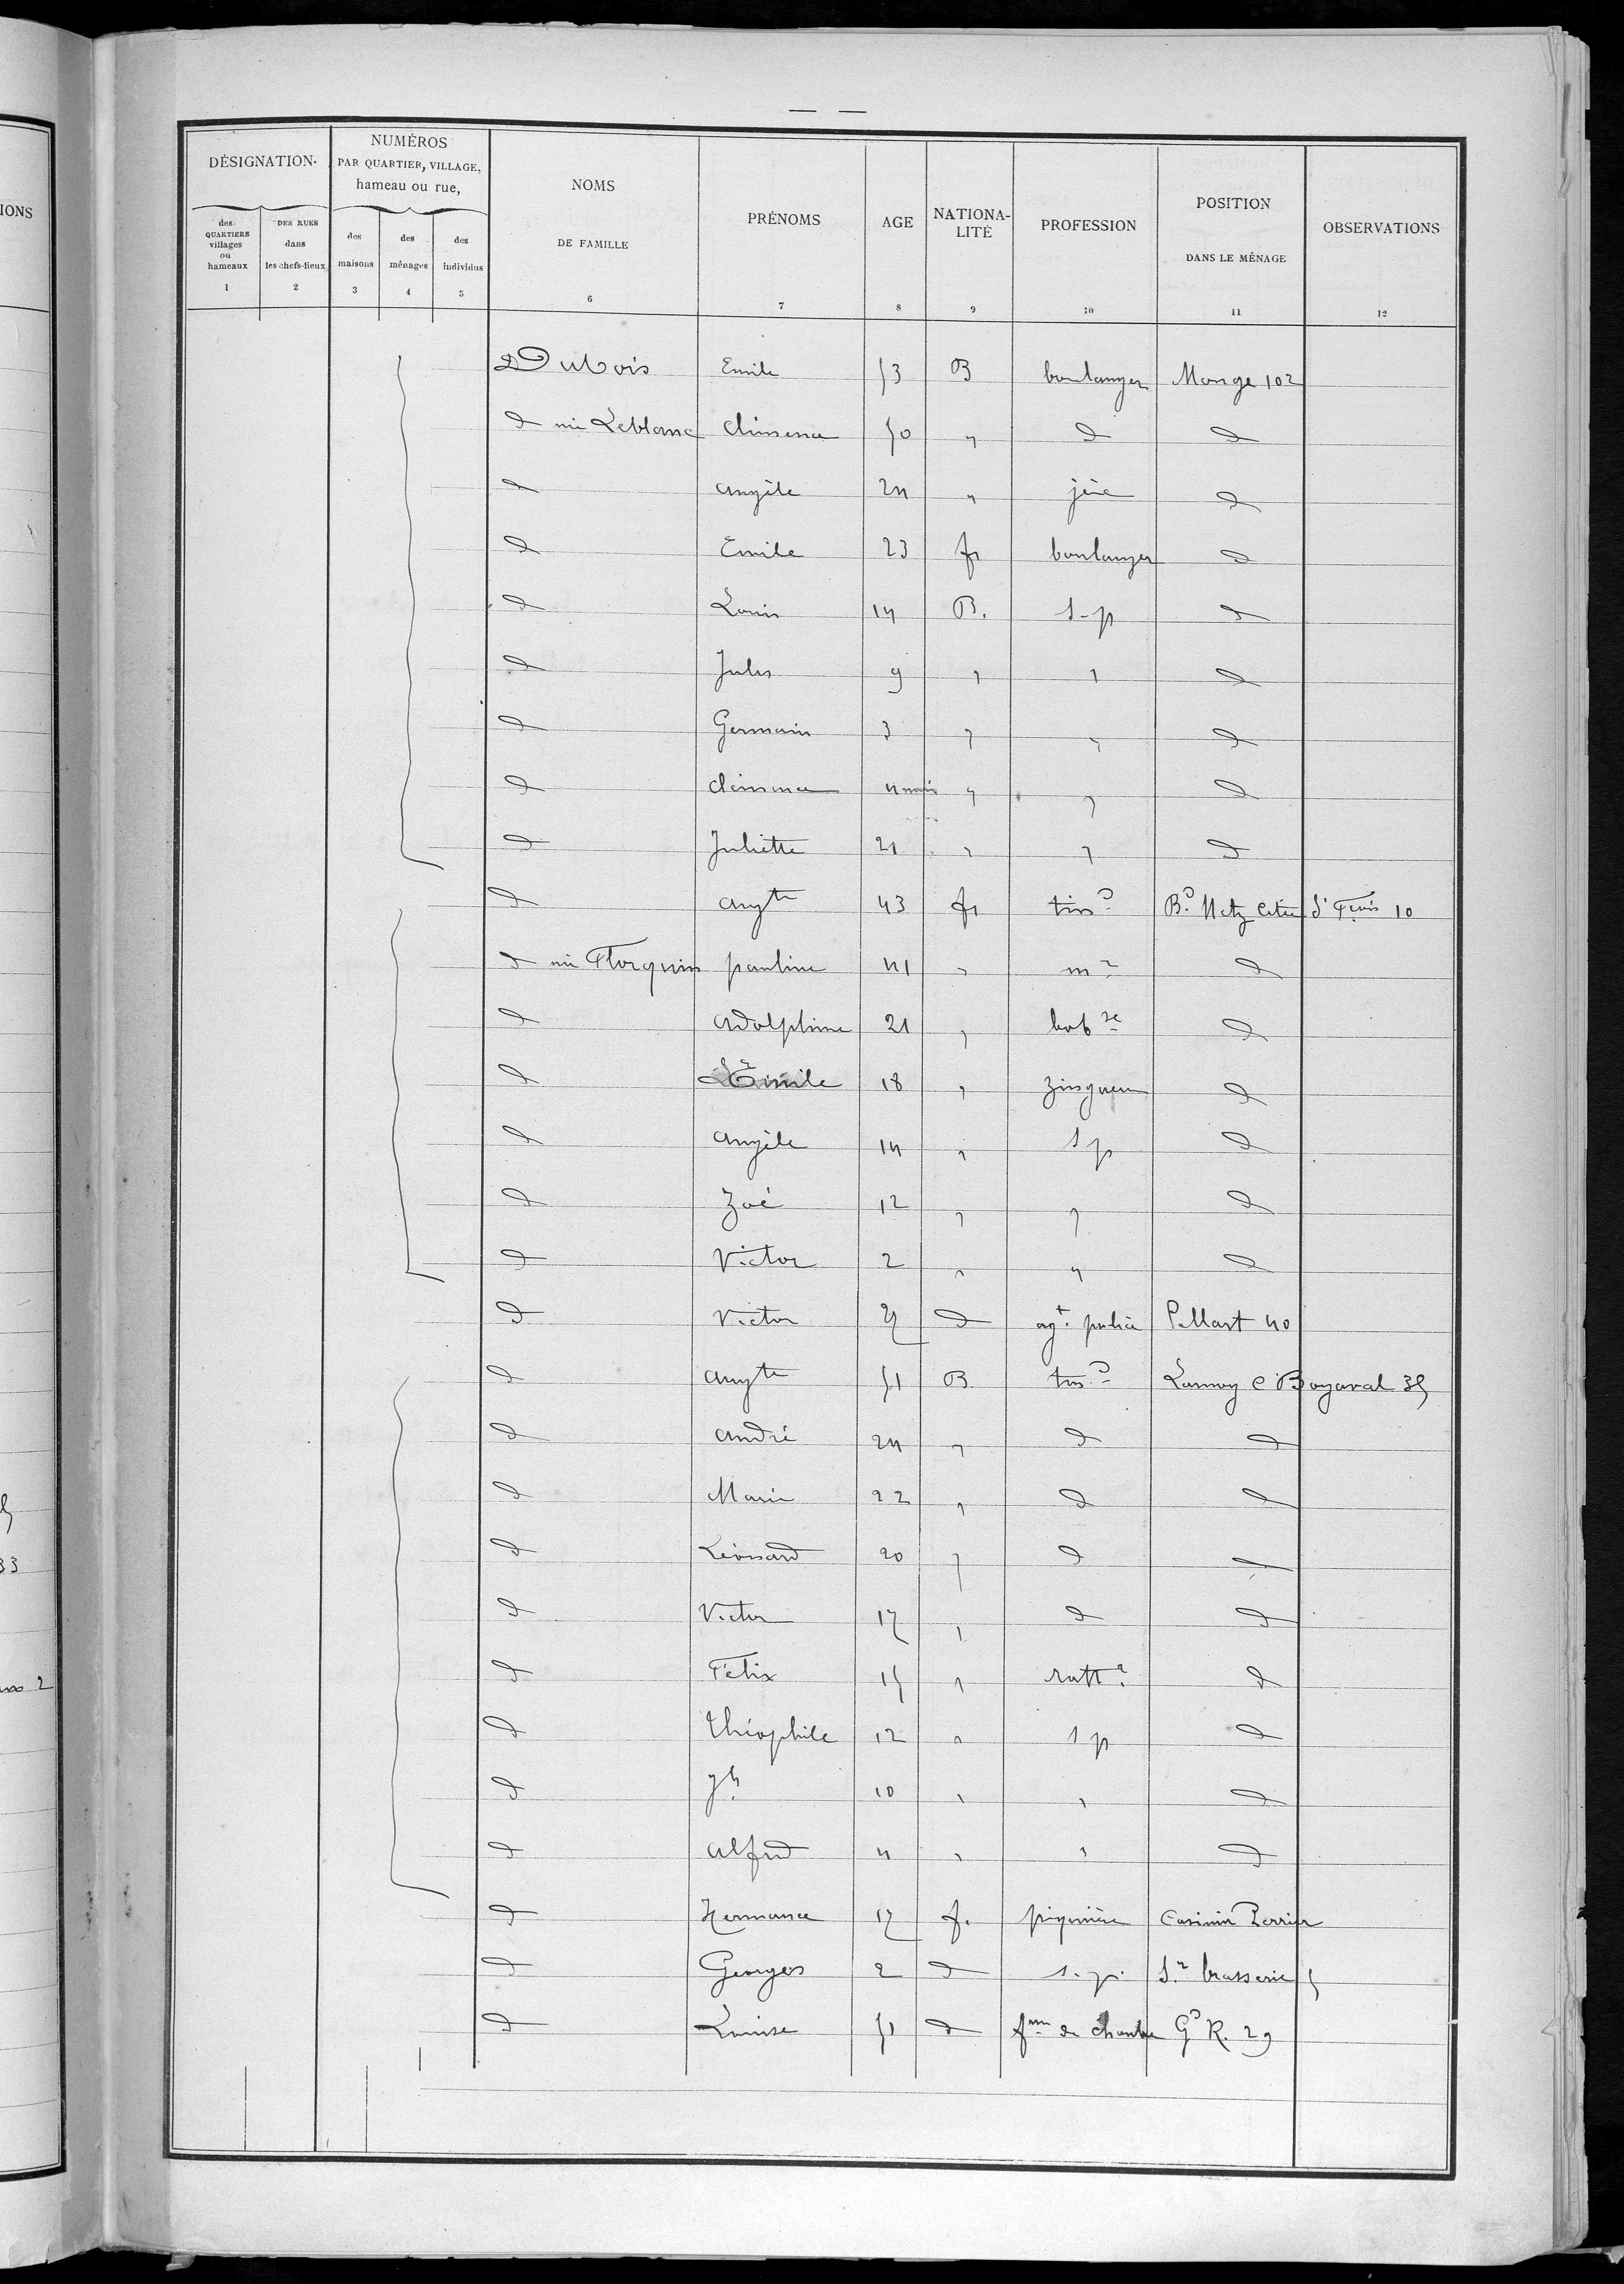 — —
DÉSIGNATION
NUMÉROS PAR QUARTIER, VILLAGE, hameau ou rue,
NOMS DE FAMILLE
PRÉNOMS
AGE
NATIONALITÉ
PROFESSION
POSITION DANS LE MÉNAGE
OBSERVATIONS
des QUARTIERS villages ou hameaux
DES RUES dans les chefs-lieux
des maisons
des ménages
des individus
1 2 3 4 5 6 7 8 9 10 11 12
Dubois Emile 53 B boulanger Monge 102
d née Leblanc Clémence 50 " d d
d Angèle 24 " d
d Emile 23 fr boulanger d
d Louis 14 B. s-p d
d Jules 9 " " d
d Germain 3 " " d
d Clémence 4 mois " " d
d Juliette 21 " " d
d Augte 43 fr tisd Bd Metz Cité 10
d née Florquin pauline 41 " mre d
d Adolphine 21 " bobse d
d Emile 18 " zingueur d
d Angèle 14 " s p d
d Zoé 12 " " d
d Victor 2 " " d
d Victor d agt police Pellart 40
d Augte 51 B tisd Lannoy C Boyaval 35
d André 24 " d d
d Marie 22 " d d
d Léonard 20 " d d
d Victor 17 " d d
d Félix 15 " ratt d
d Théophile 12 " s p d
d Jh 10 " " d
d Alfred 4 " " d
d Hermance 17 f. piqurière Casimir Perrier
d Georges 2 d s. p. brasserie 5
d Louise 51 d fme de chambre Gd R. 29
IONS
33
2